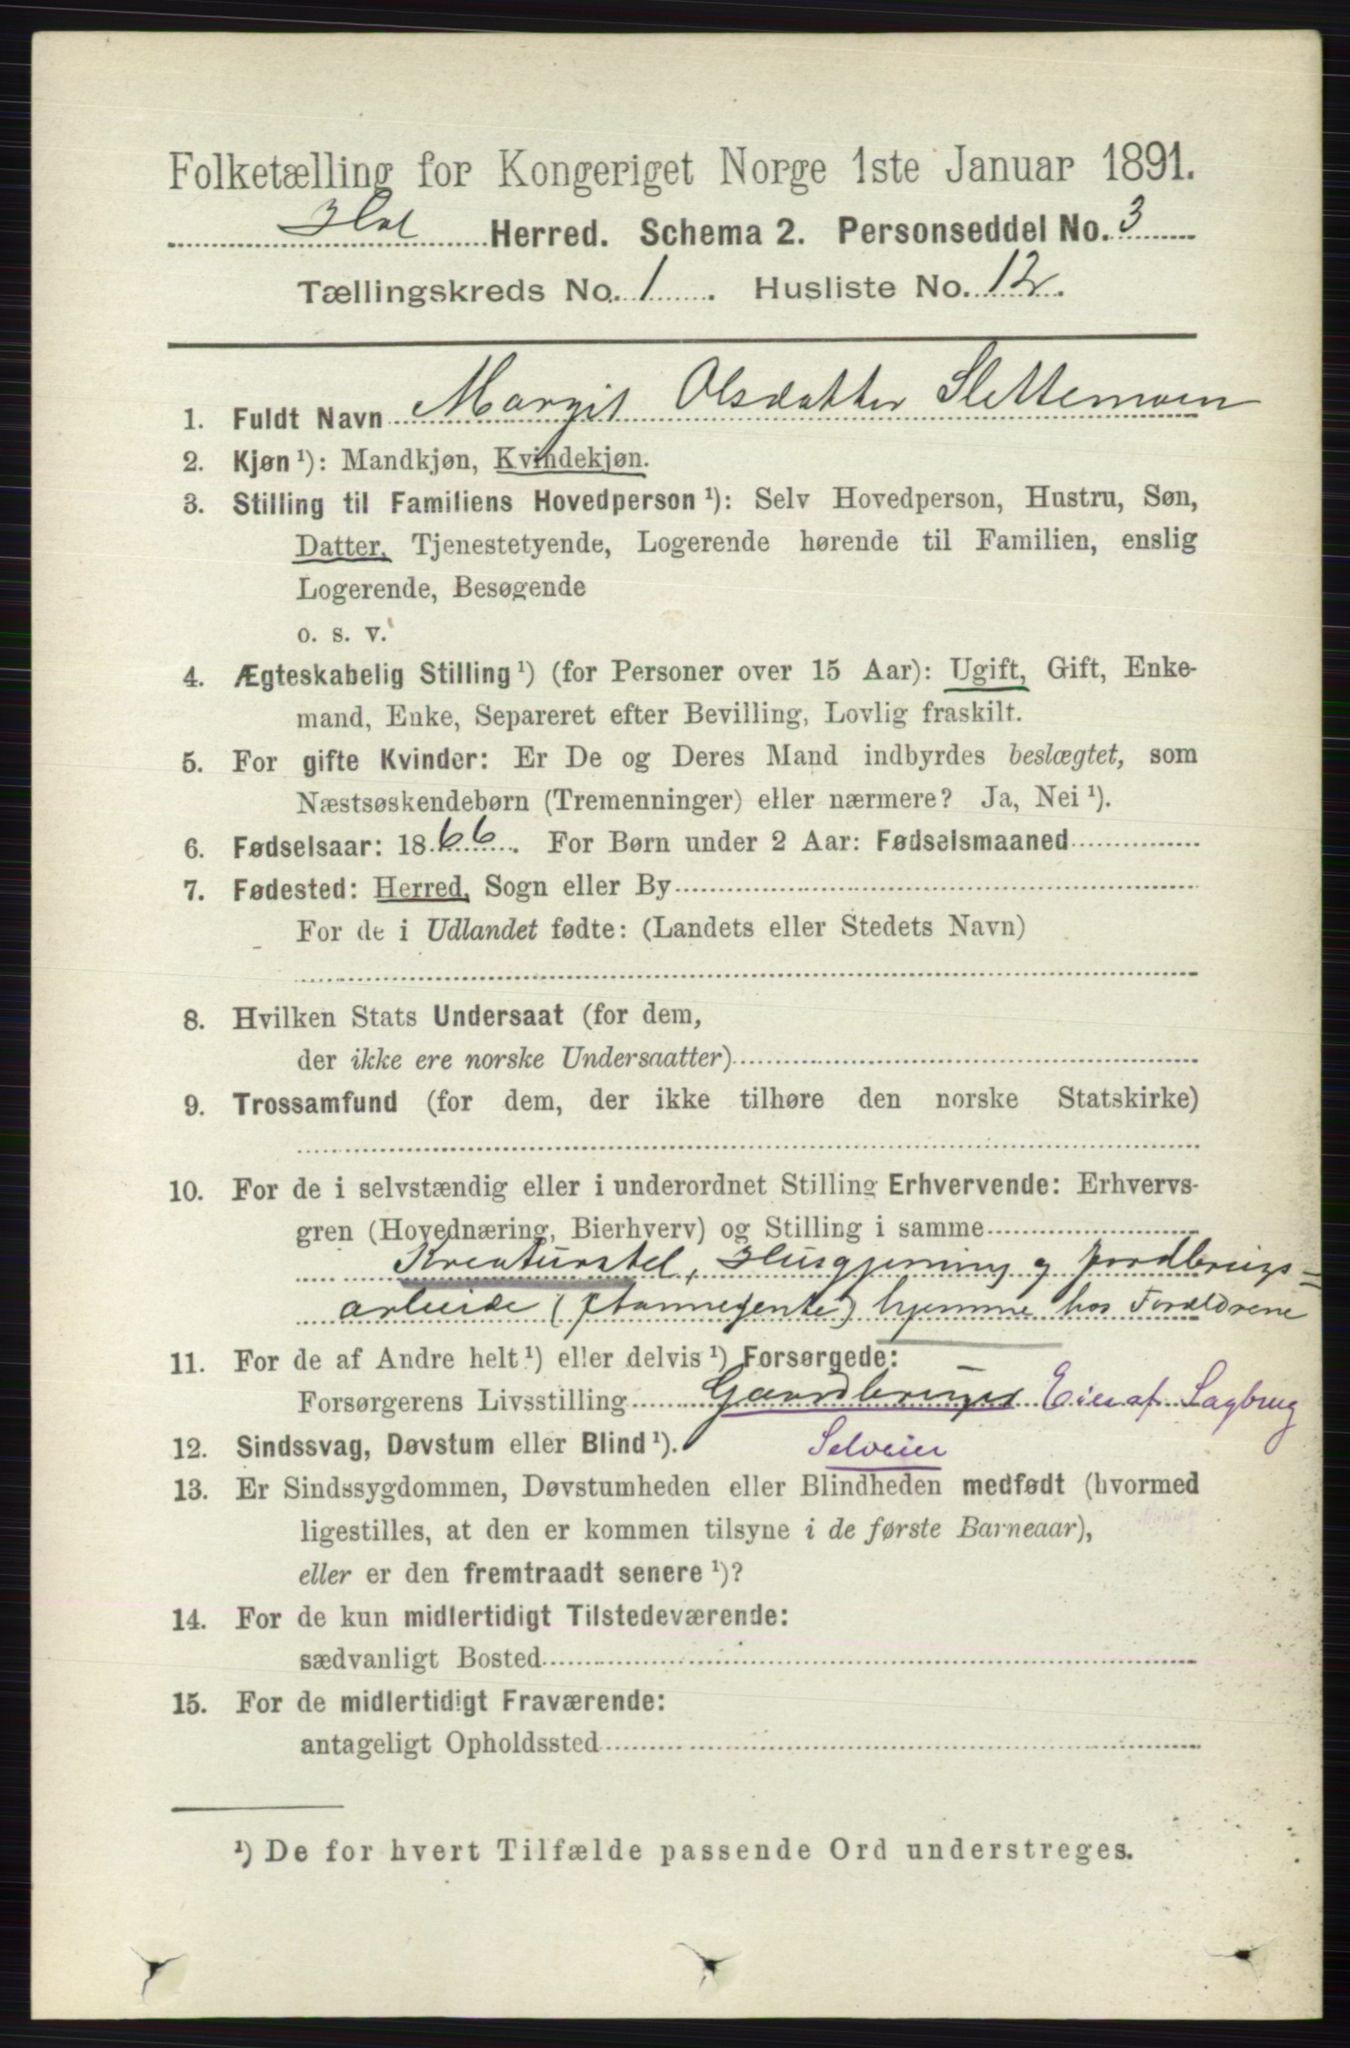 Folketælling for Kongeriget Norge 1ste Januar 1891.
Hol Herred. Schema 2. Personseddel No. 3
Tællingskreds No. 1. Husliste No. 12.
1. Fuldt Navn Margit Olsdatter Slettemoen
2. Kjøn ¹): Mandkjøn, Kvindekjøn.
3. Stilling til Familiens Hovedperson ¹): Selv Hovedperson, Hustru, Søn,
Datter, Tjenestetyende, Logerende hørende til Familien, enslig
Logerende, Besøgende
o. s. v.
4. Ægteskabelig Stilling ¹) (for Personer over 15 Aar): Ugift, Gift, Enke-
mand, Enke, Separeret efter Bevilling, Lovlig fraskilt.
5. For gifte Kvinder: Er De og Deres Mand indbyrdes beslægtet, som
Næstsøskendebørn (Tremenninger) eller nærmere? Ja, Nei ¹).
6. Fødselsaar: 1866. For Børn under 2 Aar: Fødselsmaaned
7. Fødested: Herred, Sogn eller By
For de i Udlandet fødte: (Landets eller Stedets Navn)
8. Hvilken Stats Undersaat (for dem,
der ikke ere norske Undersaatter)
9. Trossamfund (for dem, der ikke tilhøre den norske Statskirke)
10. For de i selvstændig eller i underordnet Stilling Erhvervende: Erhvervs-
gren (Hovednæring, Bierhverv) og Stilling i samme
Kreaturstel, Husgjerning og Jordbrugs-
arbeide (                ) hjemme hos Forældrene
11. For de af Andre helt ¹) eller delvis ¹) Forsørgede:
Forsørgerens Livsstilling Gaardbruger Eier af Sagbrug
12. Sindssvag, Døvstum eller Blind ¹). Selveier
13. Er Sindssygdommen, Døvstumheden eller Blindheden medfødt (hvormed
ligestilles, at den er kommen tilsyne i de første Barneaar),
eller er den fremtraadt senere ¹)?
14. For de kun midlertidigt Tilstedeværende:
sædvanligt Bosted
15. For de midlertidigt Fraværende:
antageligt Opholdssted
¹) De for hvert Tilfælde passende Ord understreges.